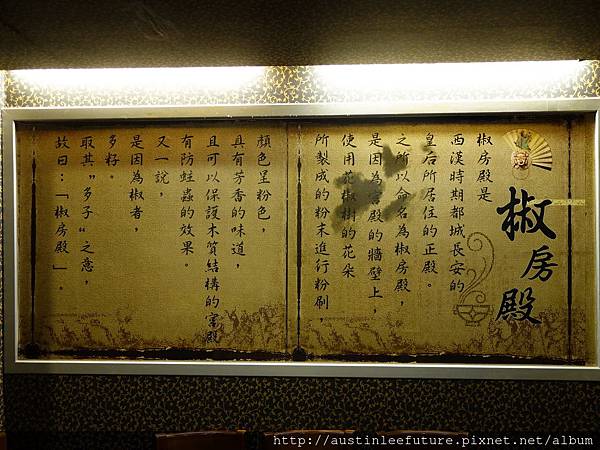 椒房殿
椒房殿是
西漢時期都城長安的
皇后所居住的正殿。
之所以命名為椒房殿，
是因為宮殿的牆壁上，
使用花椒樹的花朵
所製成的粉末進行粉刷，
顏色呈粉色，
具有芳香的味道，
且可以保護木質結構的宮殿
有防蛀蟲的效果。
又一說，
是因為椒者，
多籽。
取其"多子"之意，
故曰：「椒房殿」。
http://austinleefuture.pixnet.net/album